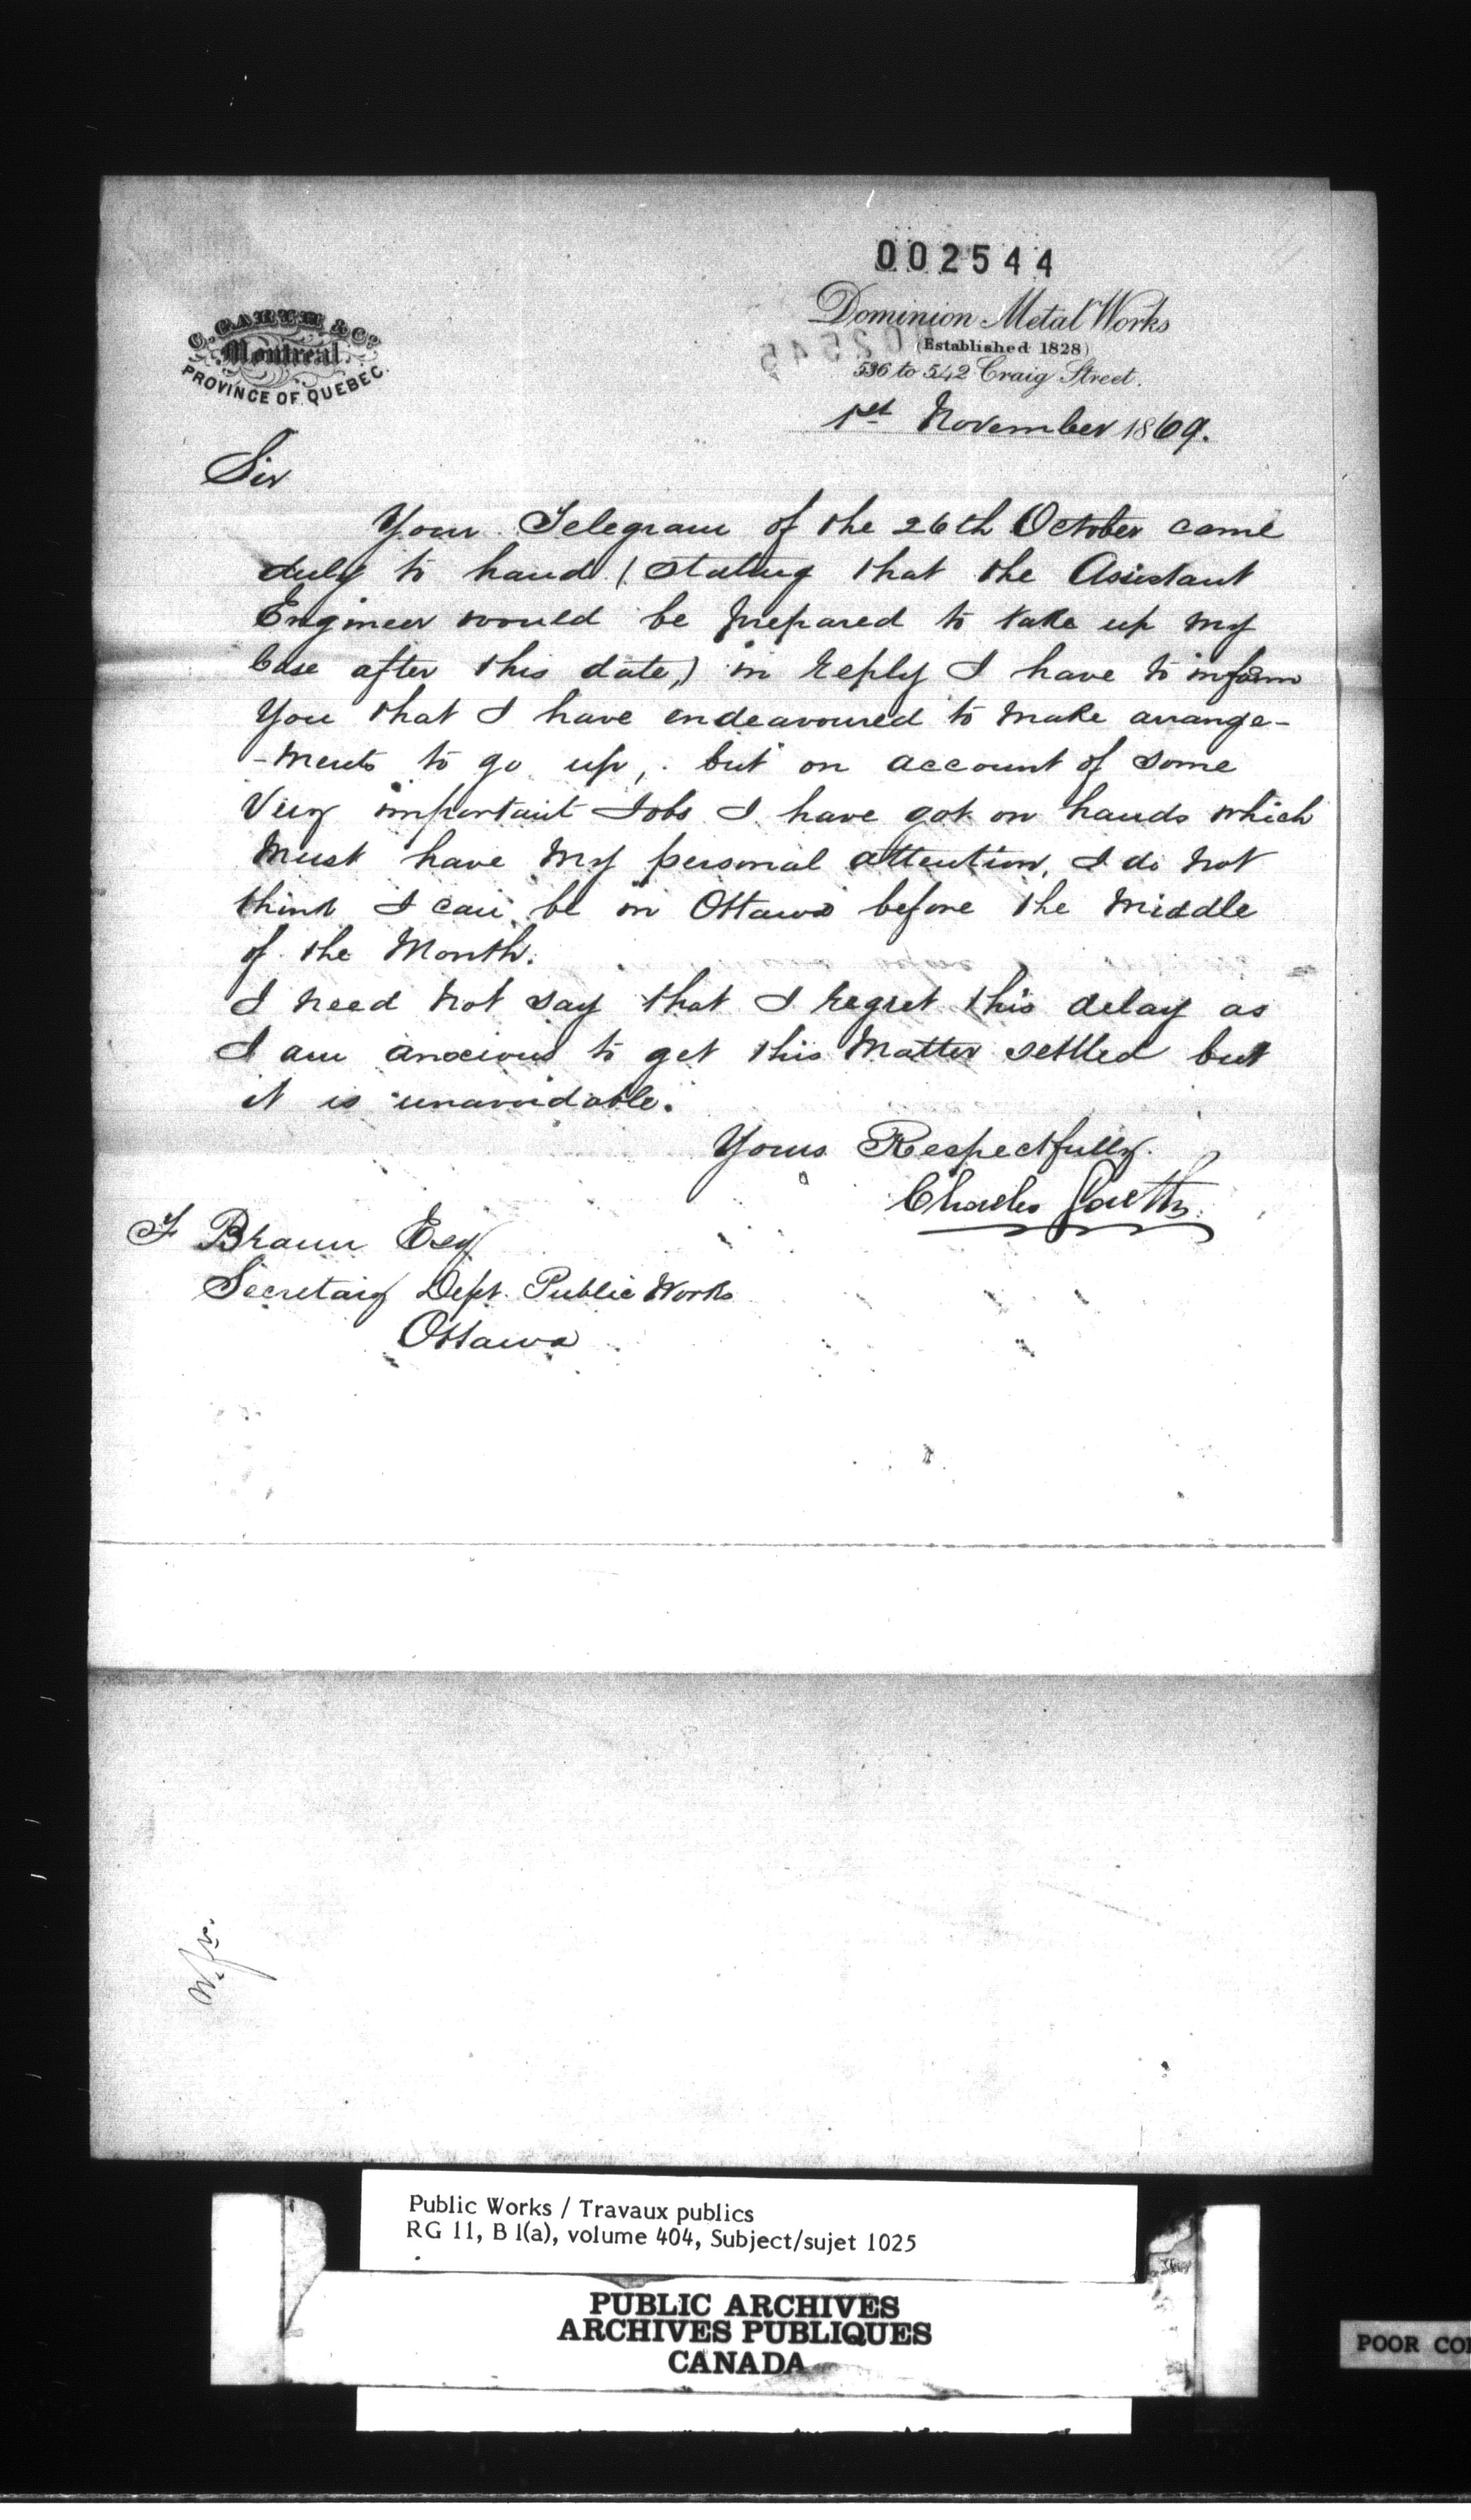 002544
C. GARTH & Co.
Montreal.
PROVINCE OF QUEBEC.
Dominion Metal Works
(Established 1828)
536 to 542 Craig Street.
1st November 1869.
Sir
Your Telegram of the 26th October came
duly to hand (stating that the Assistant
Engineer would be prepared to take up my
Case after this date,) in reply I have to inform
You that I have endeavoured to make arrange-
-ments to go up, but on account of some
Very important Jobs I have got on hands which
Must have My personal attention, I do not
think I can be in Ottawa before the Middle
of the Month.
I need not say that I regret this delay as
I am anxious to get this Matter settled but
it is unavoidable.
Yours Respectfully.
Charles Garth
F Braun Esq
Secretary Dept. Public Works
Ottawa
Public Works / Travaux publics
RG 11, B 1(a), volume 404, Subject/sujet 1025
PUBLIC ARCHIVES
ARCHIVES PUBLIQUES
CANADA
POOR CO